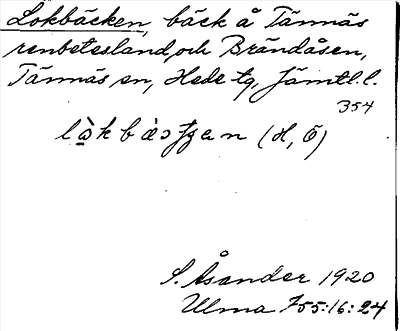 Lokbäcken, bäck å Tännäs
renbetesland, och Brändåsen,
Tännäs sn, Hede tg, Jämtl. l.
354
(H, Ö)
S. Åsander 1920
Ulma 755:16:24